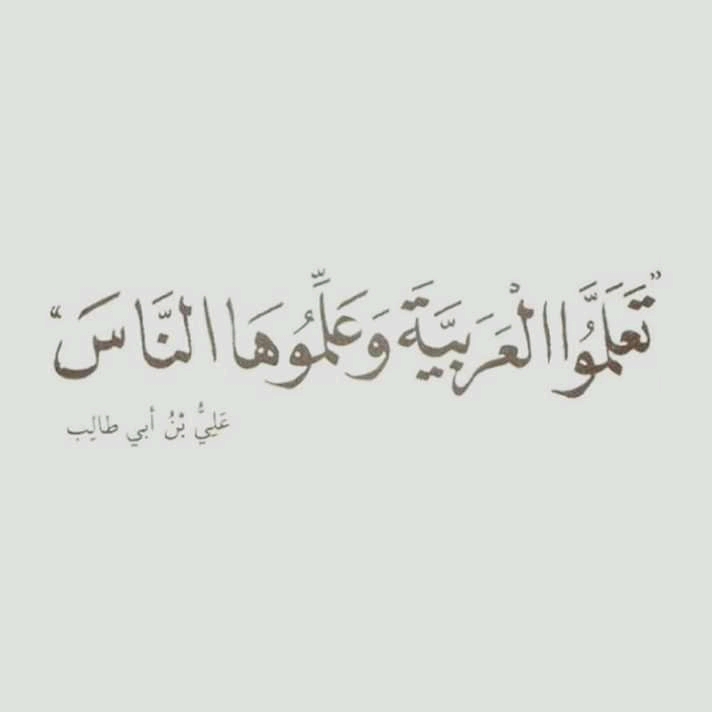 ”تَعَلَمَّوُا الْعَرَبيَّةَ وَعَلِّمُوهَا النَّاسَ“
عَلِيُّ بْنُ أبي طالِب